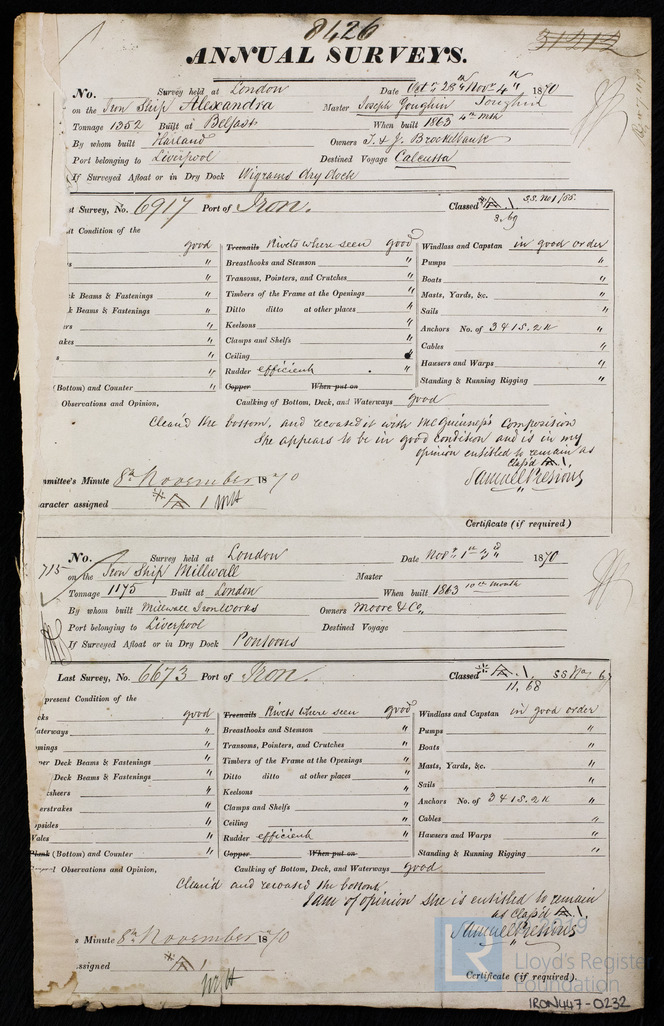 8426
31212
ANNUAL SURVEYS.
No. Survey held at London Date Oct 28th & Novr 4th 1870
on the Iron Ship Alexandra Master Joseph Goughin
Tonnage 1352 Built at Belfast When built 1863 4th mth
By whom built Harland Owners T. & J. Brocklebank
Port belonging to Liverpool Destined Voyage Calcutta
If Surveyed Afloat or in Dry Dock Wigrams dry dock
st Survey, No. 6917 Port of Iron. Classed A 1. S.S. No 1/68
3.69
t Condition of the
good Treenails Rivets where seen good Windlass and Capstan in good order
s " Breasthooks and Stemson " Pumps "
" Transoms, Pointers, and Crutches " Boats "
k Beams & Fastenings " Timbers of the Frame at the Openings " Masts, Yards, &c. "
k Beams & Fastenings " Ditto ditto at other places " Sails "
ers " Keelsons " Anchors No. of 3 & 1 S. 2 K "
akes " Clamps and Shelfs " Cables "
s " Ceiling " Hawsers and Warps "
" Rudder efficient " Standing & Running Rigging "
(Bottom) and Counter " Copper When put on
Observations and Opinion, Caulking of Bottom, Deck, and Waterways good
Clean'd the bottom, and recoated it with McGuinness's Composition
She appears to be in good condition and is in my
opinion entitled to remain as
class'd A 1.
mmittee's Minute 8th November 1870 Samuel Presious
aracter assigned A 1 WH
Certificate (if required)
No. Survey held at London Date Novr 1st & 3rd 1870
715 on the Iron Ship Millwall Master
Tonnage 1175 Built at London When built 1863 10th month
By whom built Millwall Iron Works Owners Moore & Co.
Port belonging to Liverpool Destined Voyage
If Surveyed Afloat or in Dry Dock Pontoons
Last Survey, No. 6673 Port of Iron. Classed A 1. SS No 1 67
11.68
present Condition of the
cks good Treenails Rivets where seen good Windlass and Capstan in good order
aterways " Breasthooks and Stemson " Pumps "
mings " Transoms, Pointers, and Crutches " Boats "
per Deck Beams & Fastenings " Timbers of the Frame at the Openings " Masts, Yards, &c. "
Deck Beams & Fastenings " Ditto ditto at other places " Sails "
sheers " Keelsons " Anchors No. of 3 & 1 S. 2 K "
erstrakes " Clamps and Shelfs " Cables "
opsides " Ceiling " Hawsers and Warps "
Wales " Rudder efficient " Standing & Running Rigging "
Plank (Bottom) and Counter " Copper When put on
Observations and Opinion, Caulking of Bottom, Deck, and Waterways good
Clean'd and recoated the bottom
I am of opinion she is entitled to remain
as class'd A 1.
s Minute 8th November 1870 Samuel Presious
ssigned A 1
WH
Certificate (if required).
2019
LR
Lloyd's Register
Foundation
IRON447-0232